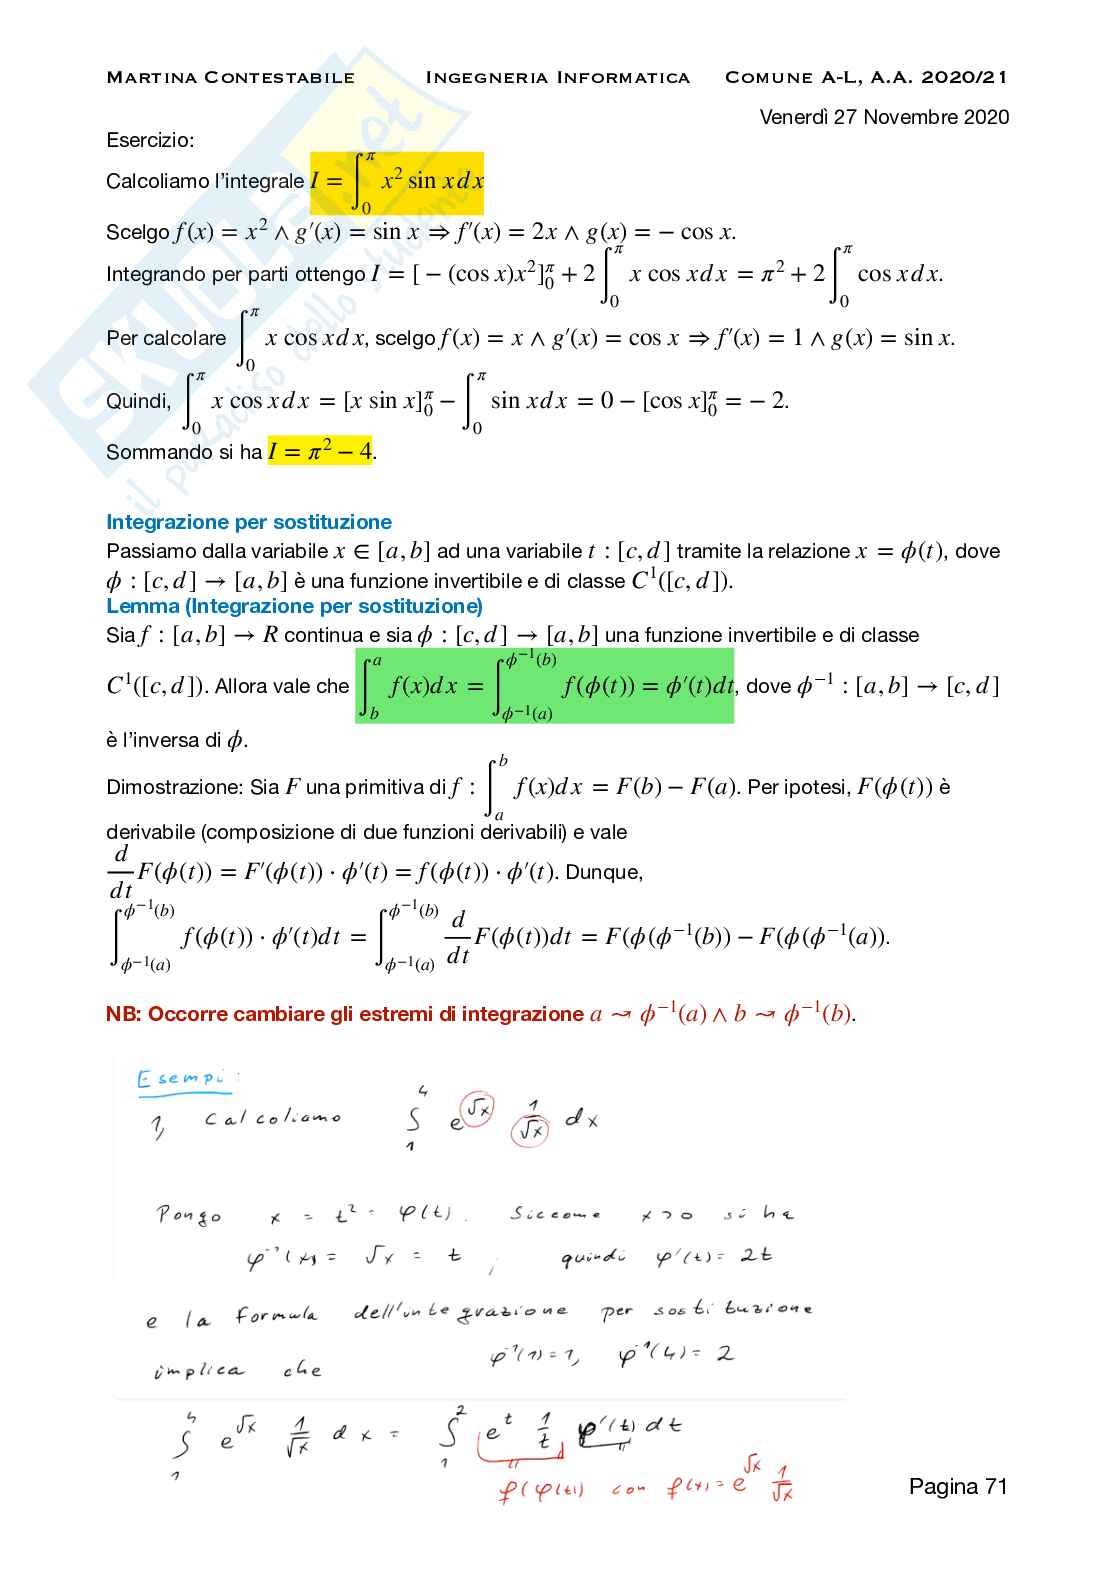 MARTINA CONTESTABILE INGEGNERIA INFORMATICA COMUNE A-L, A.A. 2020/21
Venerdì 27 Novembre 2020
Esercizio:
Calcoliamo l'integrale I = ∫_0^π x² sin x dx
Scelgo f(x) = x² ∧ g′(x) = sin x ⇒ f′(x) = 2x ∧ g(x) = − cos x.
Integrando per parti ottengo I = [ − (cos x)x²]_0^π + 2 ∫_0^π x cos x dx = π² + 2 ∫_0^π cos x dx.
Per calcolare ∫_0^π x cos x dx, scelgo f(x) = x ∧ g′(x) = cos x ⇒ f′(x) = 1 ∧ g(x) = sin x.
Quindi, ∫_0^π x cos x dx = [x sin x]_0^π − ∫_0^π sin x dx = 0 − [cos x]_0^π = − 2.
Sommando si ha I = π² − 4.
Integrazione per sostituzione
Passiamo dalla variabile x ∈ [a, b] ad una variabile t : [c, d] tramite la relazione x = ϕ(t), dove
ϕ : [c, d] → [a, b] è una funzione invertibile e di classe C¹([c, d]).
Lemma (Integrazione per sostituzione)
Sia f : [a, b] → R continua e sia ϕ : [c, d] → [a, b] una funzione invertibile e di classe
C¹([c, d]). Allora vale che ∫_b^a f(x)dx = ∫_{ϕ⁻¹(a)}^{ϕ⁻¹(b)} f(ϕ(t)) = ϕ′(t)dt, dove ϕ⁻¹ : [a, b] → [c, d]
è l'inversa di ϕ.
Dimostrazione: Sia F una primitiva di f : ∫_a^b f(x)dx = F(b) − F(a). Per ipotesi, F(ϕ(t)) è
derivabile (composizione di due funzioni derivabili) e vale
d/dt F(ϕ(t)) = F′(ϕ(t)) · ϕ′(t) = f(ϕ(t)) · ϕ′(t). Dunque,
∫_{ϕ⁻¹(a)}^{ϕ⁻¹(b)} f(ϕ(t)) · ϕ′(t)dt = ∫_{ϕ⁻¹(a)}^{ϕ⁻¹(b)} d/dt F(ϕ(t))dt = F(ϕ(ϕ⁻¹(b)) − F(ϕ(ϕ⁻¹(a)).
NB: Occorre cambiare gli estremi di integrazione a ⤳ ϕ⁻¹(a) ∧ b ⤳ ϕ⁻¹(b).
Esempi:
1, Calcoliamo ∫_1^4 e^√x 1/√x dx
Pongo x = t² = φ(t). Siccome x>0 si ha
φ⁻¹(x) = √x = t ; quindi φ′(t) = 2t
e la formula dell'integrazione per sostituzione
implica che φ⁻¹(1)=1, φ⁻¹(4)=2
∫_1^4 e^√x 1/√x dx = ∫_1^2 e^t 1/t φ′(t) dt
f(φ(t)) con f(x) = e^√x 1/√x
Pagina 71
SKUOLA.net
il paradiso dello studente